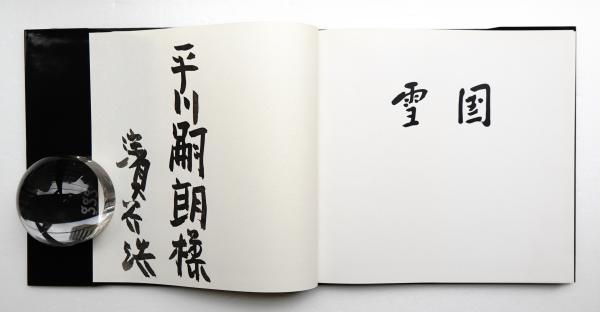 平川嗣朗様
濱谷浩
雪国